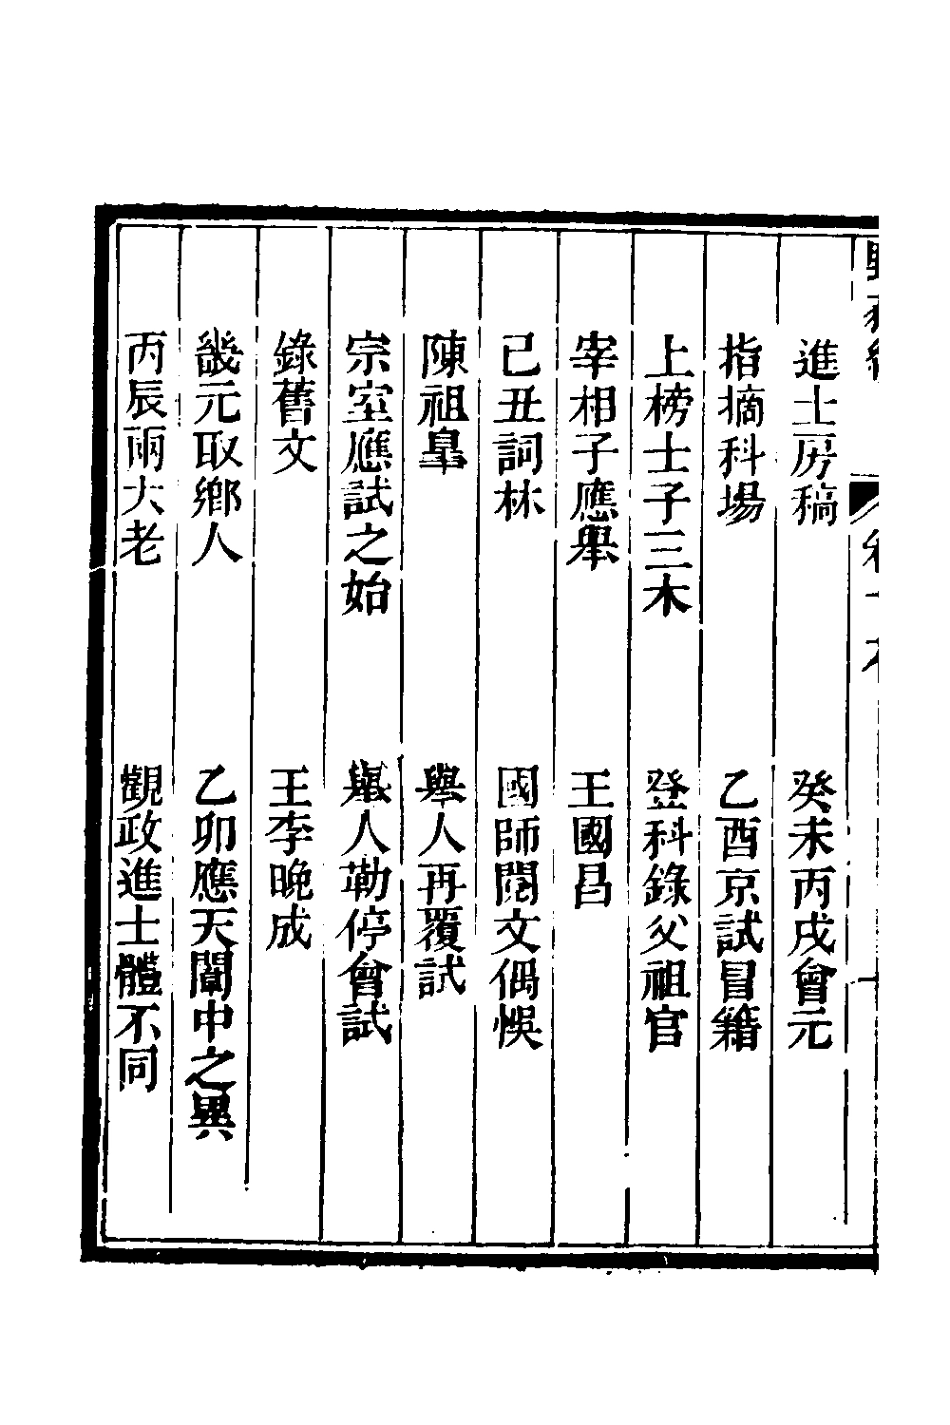 進士房稿　癸未丙戌會元
指摘科場　乙酉京試冒籍
上榜士子三木　登科錄父祖官
宰相子應舉　王國昌
己丑詞林　國師閱文偶悞
陳祖臯　舉人再覆試
宗室應試之始　舉人勒停會試
錄舊文　王李晚成
畿元取鄉人　乙卯應天闈中之異
丙辰兩大老　觀政進士體不同